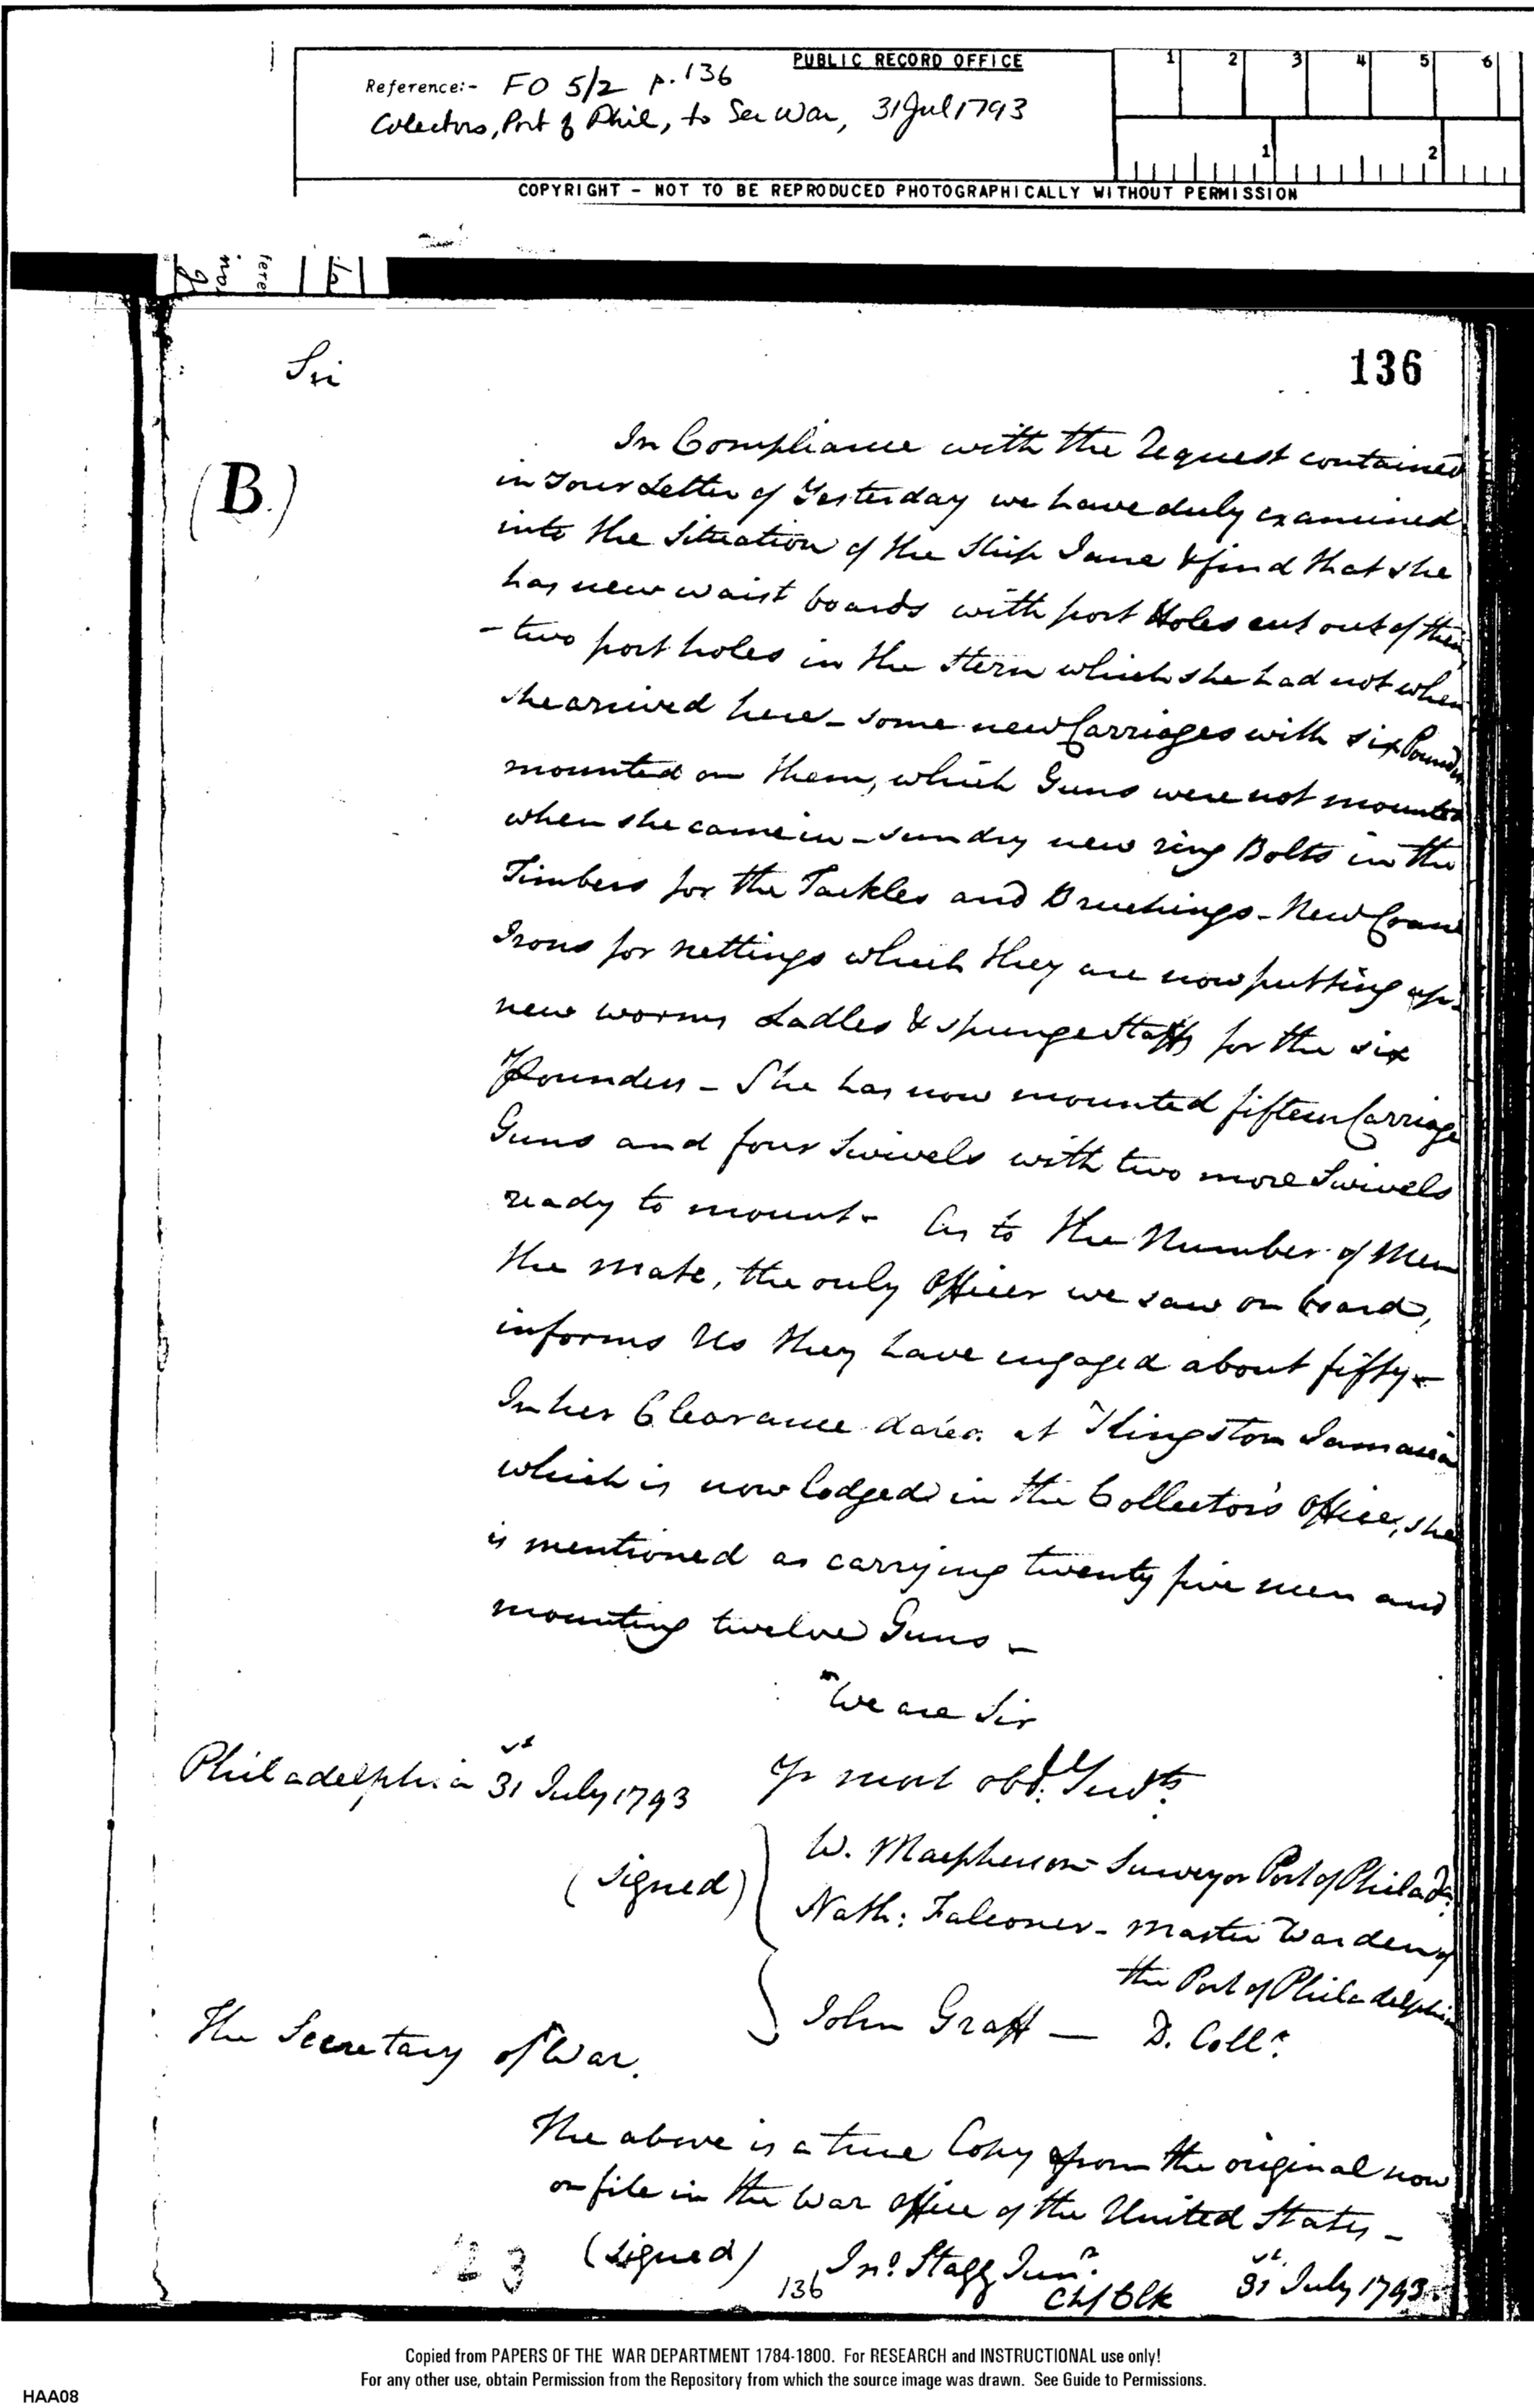 PUBLIC RECORD OFFICE
Reference:- FO 5/2 p.136
Colectors, Port of Phil, to Sec War, 31 Jul 1793
1 2 3 4 5 6
1 2
COPYRIGHT - NOT TO BE REPRODUCED PHOTOGRAPHICALLY WITHOUT PERMISSION
136
Sir
(B.)
In Compliance with the Request contained
in Your Letter of Yesterday we have duly examined
into the Situation of the Ship Jane & find that she
has new waist boards with port Holes cut out of them,
- two port holes in the Stern which she had not when
she arrived here - some new Carriages with six Pounders
mounted on them, which Guns were not mounted
when she came in - sundry new ring Bolts in the
Timbers for the Tackles and Breechings - New Crane
Irons for nettings which they are now putting up -
new worms Ladles & spunge Staffs for the six
Pounders - She has now mounted fifteen Carriage
Guns and four Swivels with two more Swivels
ready to mount - As to the Number of Men
the Mate, the only Officer we saw on board,
informs Us they have engaged about fifty -
In her Clearance dated at Kingston Jamaica
which is now lodged in the Collector's Office, she
is mentioned as carrying twenty five men and
mounting twelve Guns -
We are Sir
Philadelphia 31st July 1793
Yr most obdt. Servts.
(signed)
W. Macpherson - Surveyor Port of Philada.
Nath: Falconer - Master Warden of
the Port of Philadelphia
John Graff - D. Collr.
The Secretary of War.
The above is a true Copy from the original now
on file in the War Office of the United States -
(signed) Jno. Stagg Junr.
Chf Clk 31st July 1793.
136
3
Copied from PAPERS OF THE WAR DEPARTMENT 1784-1800. For RESEARCH and INSTRUCTIONAL use only!
For any other use, obtain Permission from the Repository from which the source image was drawn. See Guide to Permissions.
HAA08